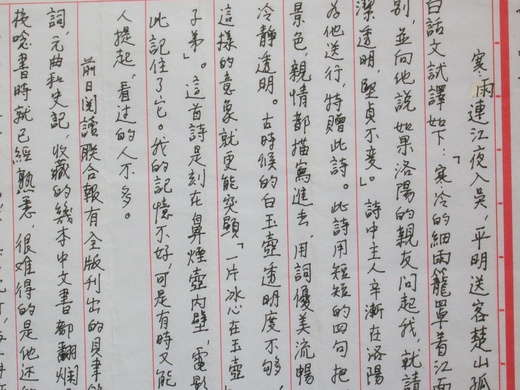 寒雨連江夜入吳，平明送客楚山孤
白話文試譯如下：「寒冷的細雨籠罩着江面
別，並向他說如果洛陽的親友問起我，就請
潔透明，堅貞不變」。詩中主人辛漸在洛陽
為他送行，特贈此詩。此詩用短短的四句把
景色，親情都描寫進去，用詞優美流暢
冷靜透明。古時候的白玉壺透明度不夠
這樣的意象就更能突顯「一片冰心在玉壺
子弟」。這首詩是刻在鼻煙壺內壁，電影
此記住了它。我的記憶不好，可是有時又能
人提起，看过的人不多。
前日閱讀聯合報有全版刊出的貝聿
詞，元曲和史記，收藏的幾本中文書都翻爛
後唸書時就已經熟悉，很难得的是他还